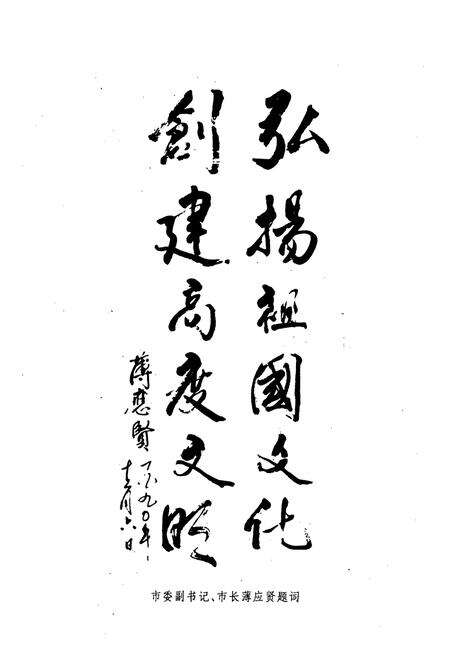 弘揚祖國文化
創建高度文明
薄應賢
一九九〇年
十二月六日
市委副书记、市长薄应贤题词